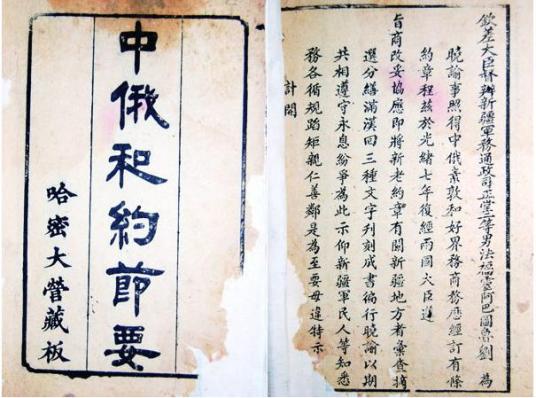 中俄和約節要
哈密大營藏板
欽差大臣督辦新疆軍務通政司正堂二等男法福靈阿巴圖魯劉 為
曉諭事照得中俄素敦和好界務商務歷經訂有條
約章程茲於光緒七年復經兩國大臣遵
旨商改妥協應即將新老約章有關新疆地方者彙查摘
選分繕滿漢回三種文字列刻成書徧行曉諭以期
共相遵守永息紛爭為此示仰新疆軍民人等知悉
務各循規蹈矩親仁善鄰是為至要毋違特示
計開